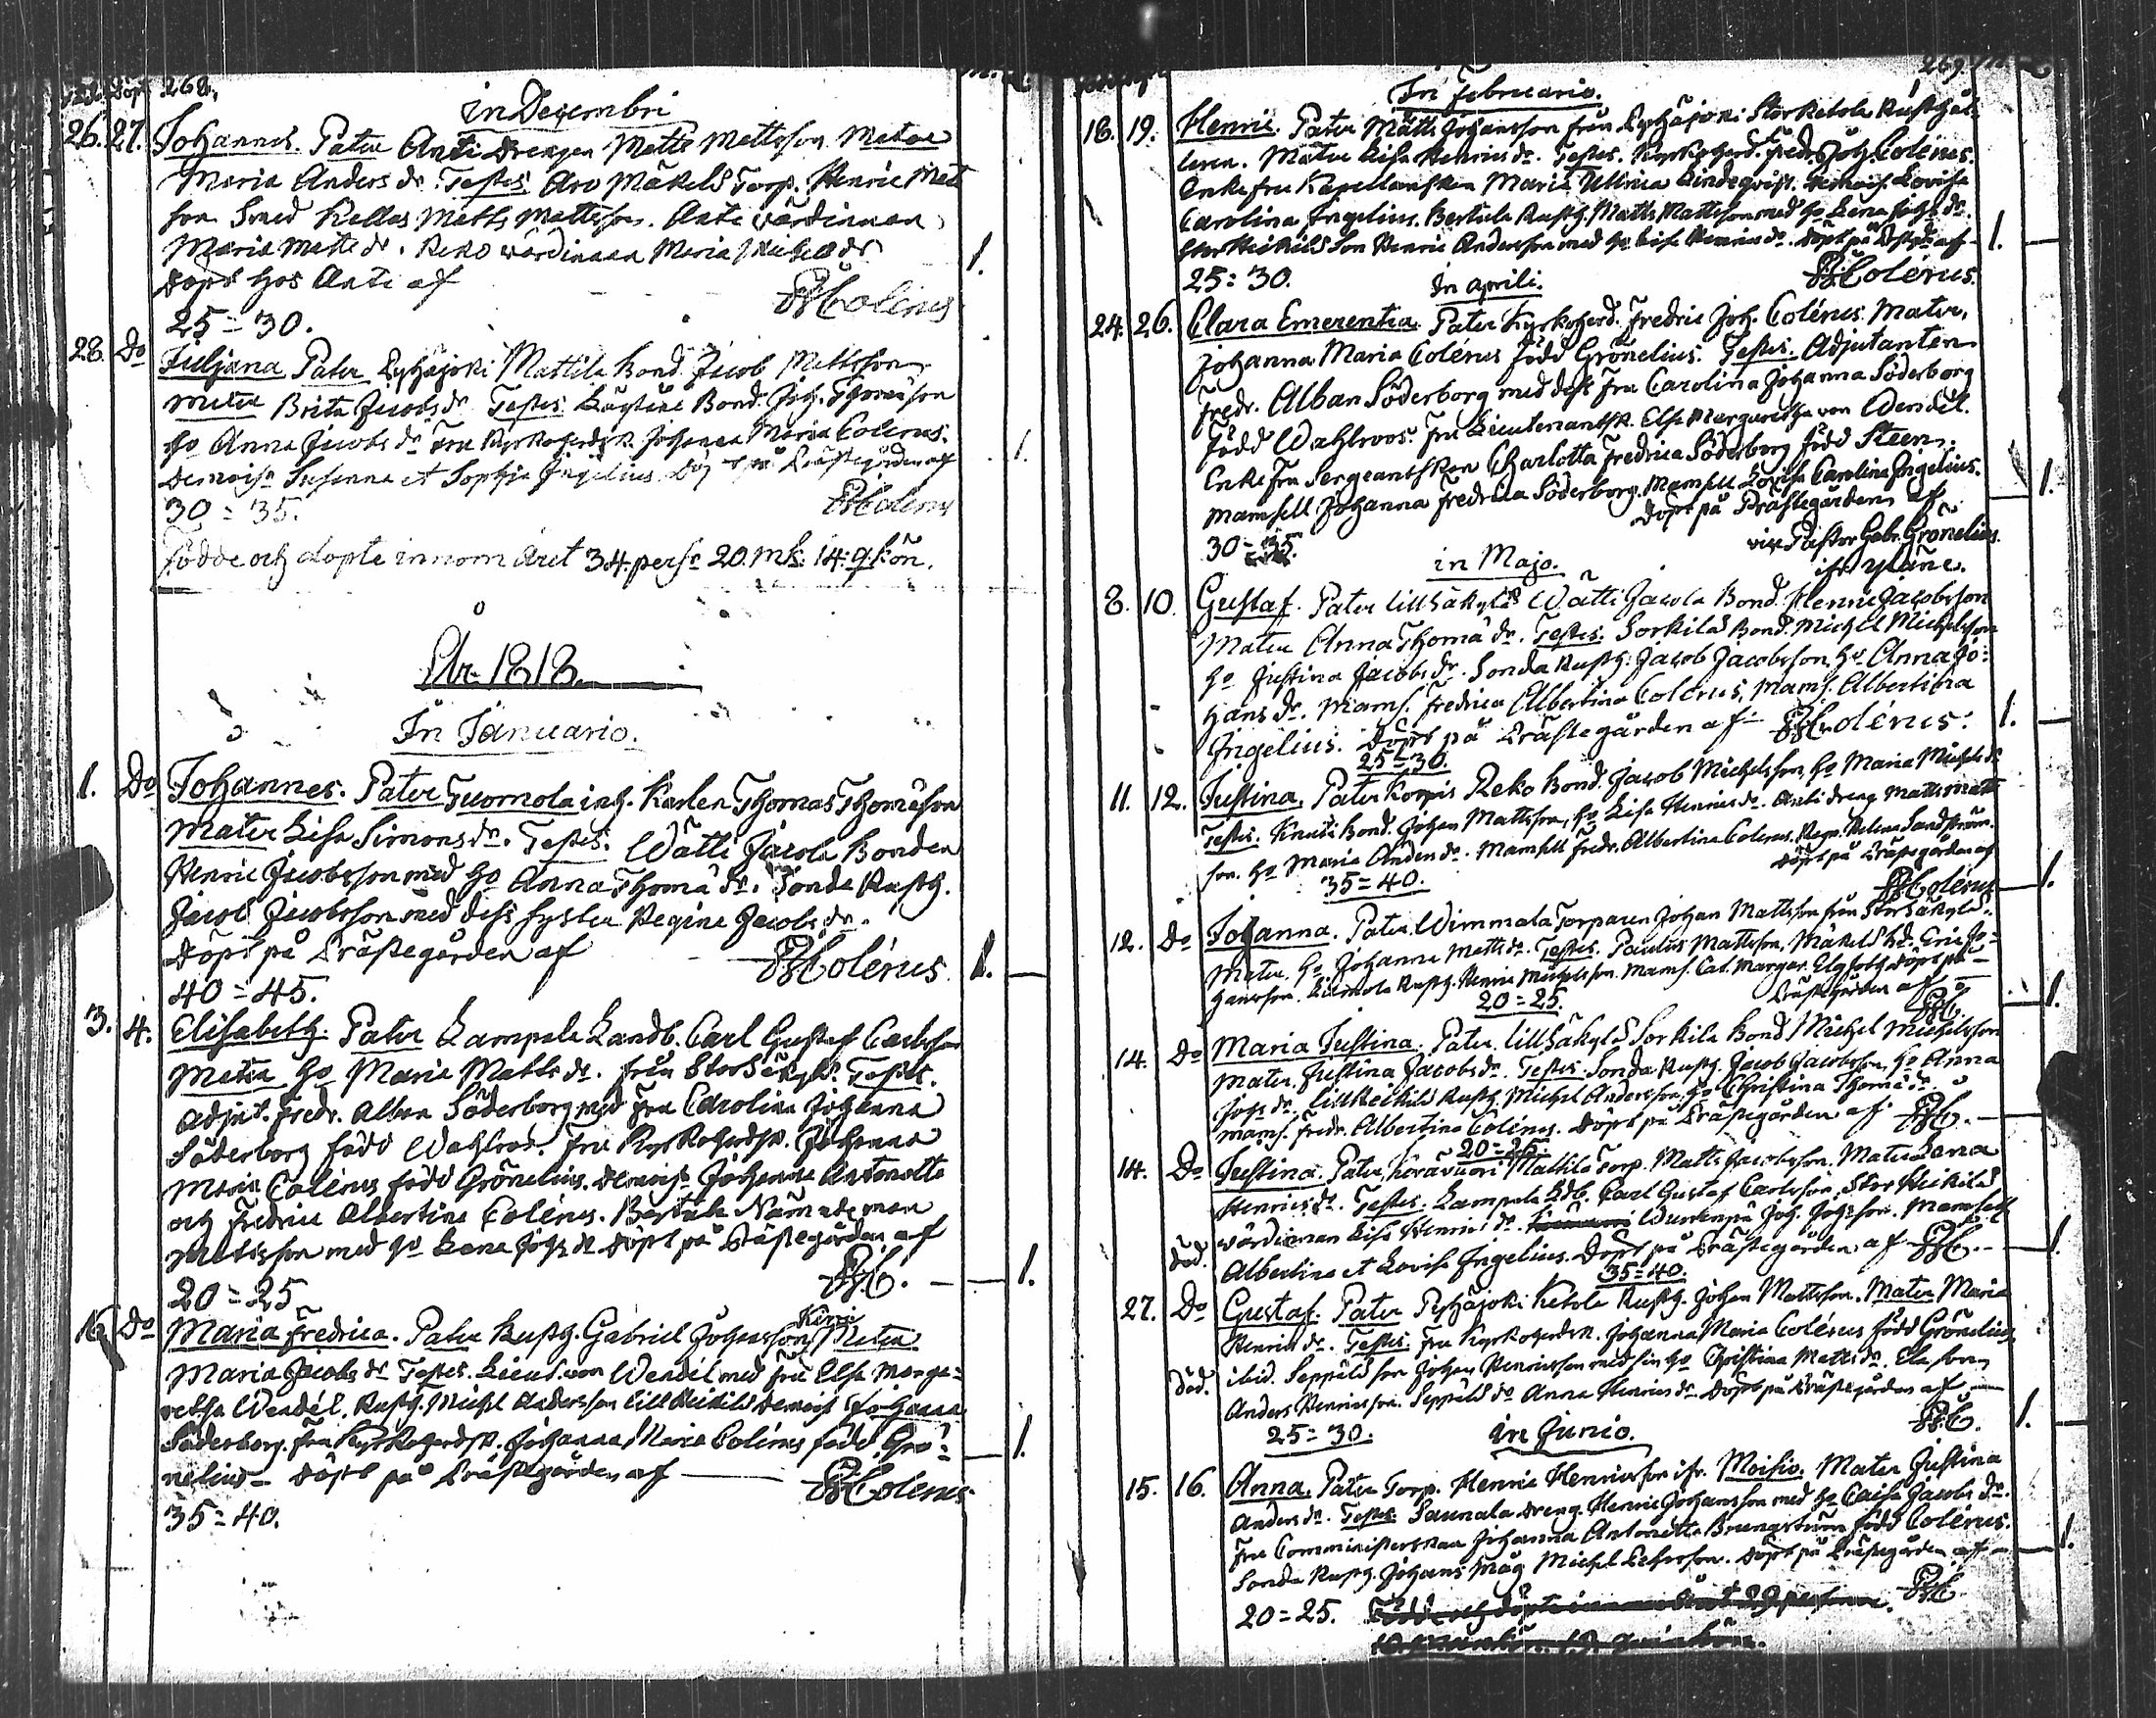 268.
in Decembri
26. 27. Johannes. Pater Anti Drengen Matts Mattsson Mater
Maria Anders dr. Testes Aro Mäkelä Torp. Henric Matts
son Smed Kallas Matts Mattsson. Anti värdinnan
Maria Matts dr. Reko värdinnan Maria Michels dr
Döpt hos Anti af FJColenus 1.
25=30.
28. Do Juljana Pater Pyhäjoki Mattila Bond. Jacob Mattsson
Mater Brita Jacobs dr Testes Bond. Joh. Thomasson
ho Anna Jacobs dr Fru Kyrkoherdsk. Johanna Maria Colenus.
Demoisn Susanna et Sophia Ingelius Döpt på Prästegården af
30=35. FJColenus 1.
Födde och döpte innom Året 34. persr 20. mk: 14: q. kön.
År 1818.
In Januario.
1. Do Johannes. Pater Tuomola inh. Karlen Thomas Thomasson
Mater Lisa Simons dr. Testes. Wätti Jacola Bonden
Henric Jacobsson med ho Anna Thomä dr. Sonda Rusth.
Jacob Jacobsson med dess syster Regina Jacobs dr.
Döpt på Prästegården af FJColérus 1.
40=45.
3. 4. Elisabeth. Pater Lampola Landb. Carl Gustaf Carlsson
Mater ho Maria Matts dr. från StorSäkylä. Testes.
Adjut. Fredr. Alban Söderborg med Fru Carolina Johanna
Söderborg född Wahlroos. Fru Kyrkoherdsk. Johanna
Maria Colérus född Grönelius. Demoisn Johanna Antonetta
och Fredrica Albertina Colérus. Bertula Nämndeman
Mattsson med ho Lena Johs dr Döpt på Prästegården af
20=25 FJC. 1.
16. Do Maria Fredrica. Pater Rusth. Gabriel Johansson Mater
Maria Jacobs dr Testes. Lieut. von Wendel med fru Elsa Marga=
retha Wendél. Rusth. Michel Andersson LillHeikilä Demois Johanna
Söderborg. Fru Kyrkoherdsk. Johanna Maria Colérus född Grö=
nelius Döpt på Prästegården af FJColenus 1.
35=40.
269
In Februario.
18. 19. Henric. Pater Matts Johansson från Pyhäjoki Storketola Rusthål=
laren. Mater Lisa Henrics dr. Testes. Kyrkoherd. Fredr. Joh. Colérus.
Enkefru Kapellanskan Maria Ullrica Lindeqvist. Demois. Lovisa
Carolina Ingelius. Bertula Rusth. Matts Mattsson med ho Lena Johs dr.
StorHeikilä son Henric Andersson med ho Lisa Henrics dr. Döpt på af 1.
25=30. FJColérus.
In aprili.
24. 26. Clara Emerentia. Pater Kyrkoherd. Fredric Joh. Colérus. Mater,
Johanna Maria Colérus född Grönelius. Testes. Adjutanten
Fredr. Alban Söderborg med dess Fru Carolina Johanna Söderborg
född Wahlroos. Fru Lieutenantsk. Elsa Margaretha von Wendél.
Enkefru Sergeantskan Charlotta Fredrica Söderborg född Steen.
Mamsell Johanna Fredrica Söderborg. Mamsell Lovisa Carolina Ingelius. 1.
Döpt på Prästegården af
30=35. vice Pastor Gabr. Grönelius
ifr. Yläne.
in Majo.
8. 10. Gustaf. Pater LillSäkylä Wätti Jacola Bond. Henric Jacobsson
Mater Anna Thomä dr. Testes. Sorkila Bond. Michel Michelsson
ho Justina Jacobs dr. Sonda Rusth. Jacob Jacobsson, ho Anna Jo=
hans dr. Mams. Fredrica Albertina Colérus, Mams. Albertina
Ingelius. Döpt på Prästegården af FJColérus. 1.
25=30.
11. 12. Justina. Pater Korpis Reko Bond. Jacob Michelsson, ho Maria Michels dr
Testes. Knuuti Bond. Johan Mattsson, ho Lisa Henrics dr. Anti dreng Matts Matts
son. ho Maria Anders dr. Mamsell Fredr. Albertina Colerus. Helena Sandström.
Döpt på Prästegården af
35=40. FJColérus 1.
12. Do Johanna. Pater. Wimmala Torparen Johan Mattsson från StorSäkylä.
Mater. ho Johanna Matts dr. Testes. Paulus Mattsson, Mäkelä Eric Jo=
hansson. Rusth. Henric Michelsson. Mams. Cat. Margar. Elgfoth. Döpt på
20=25. Prästegården af FJC. 1.
14. Do Maria Justina. Pater. LillSäkylä Sorkila Bond Michel Michelsson
Mater. Justina Jacobs dr. Testes. Sonda Rusth. Jacob Jacobsson, ho Anna
Johs dr. LillHeikilä Rusth. Michel Andersson, ho Christina Thomä dr.
Mams. Fredr. Albertina Colérus. Döpt på Prästegården af FJC.
20=25.
14. Do Justina. Pater, Koravuori Mattila Torp. Matts Jacobsson. Mater Lena
Henrics dr. Testes. Lampola Ldb. Carl Gustaf Carlsson, StorHeikilä
värdinnan Lisa Henrics dr. Joh. Johsson. Mamsell
död. Albertina et Lovisa Ingelius. Döpt på Prästegården af FJC. 1.
35=40.
27. Do Gustaf. Pater Pyhäjoki Ketola Rusth. Johan Mattsson. Mater Maria
Henrics dr. Testes. Fru Kyrkoherdsk. Johanna Maria Colérus född Grönelius
död. ibid. Seppälä son Johan Henricsson med sin ho Christina Matts dr. Ela son
Anders Henricsson. Seppälä dr Anna Henrics dr. Döpt på Prästegården af
25=30. FJC. 1.
in Junio.
15. 16. Anna. Pater Torp. Henric Henricsson ifr. Moisio. Mater Justina
Anders dr. Testes. Saunala dreng. Henric Johansson med ho Caisa Jacobs dr.
Fru Comministerskan Johanna Antonetta Brungström född Colérus.
Sonda Rusth. Johans måg Michel Ersson. Döpt på Prästegården af 1.
20=25. FJC.